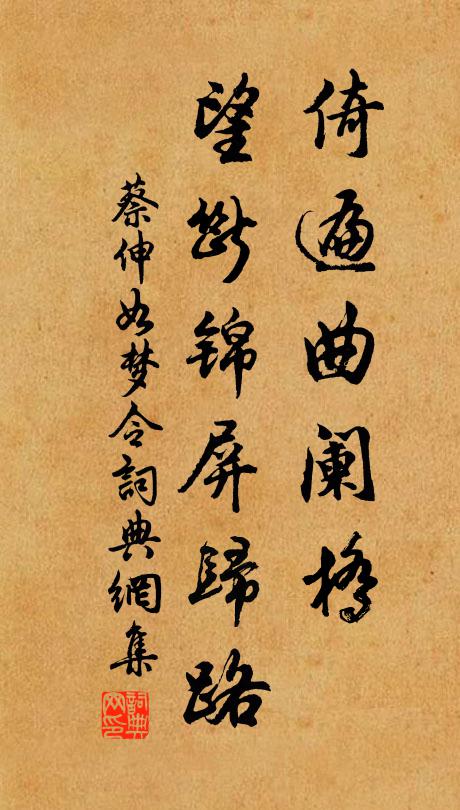 倚遍曲阑桥
望断锦屏歸路
蔡伸如梦令詞典網集
詞典
网印